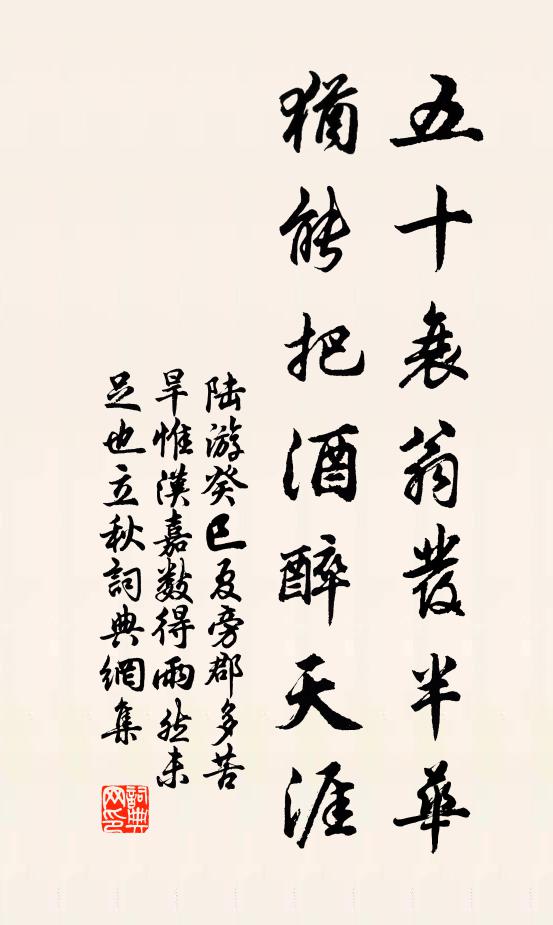 五十衰翁發半華
猶能把酒醉天涯
陸游癸巳夏旁郡多苦
旱惟漢嘉數得雨然未
足也立秋詞典網集
詞典
网印